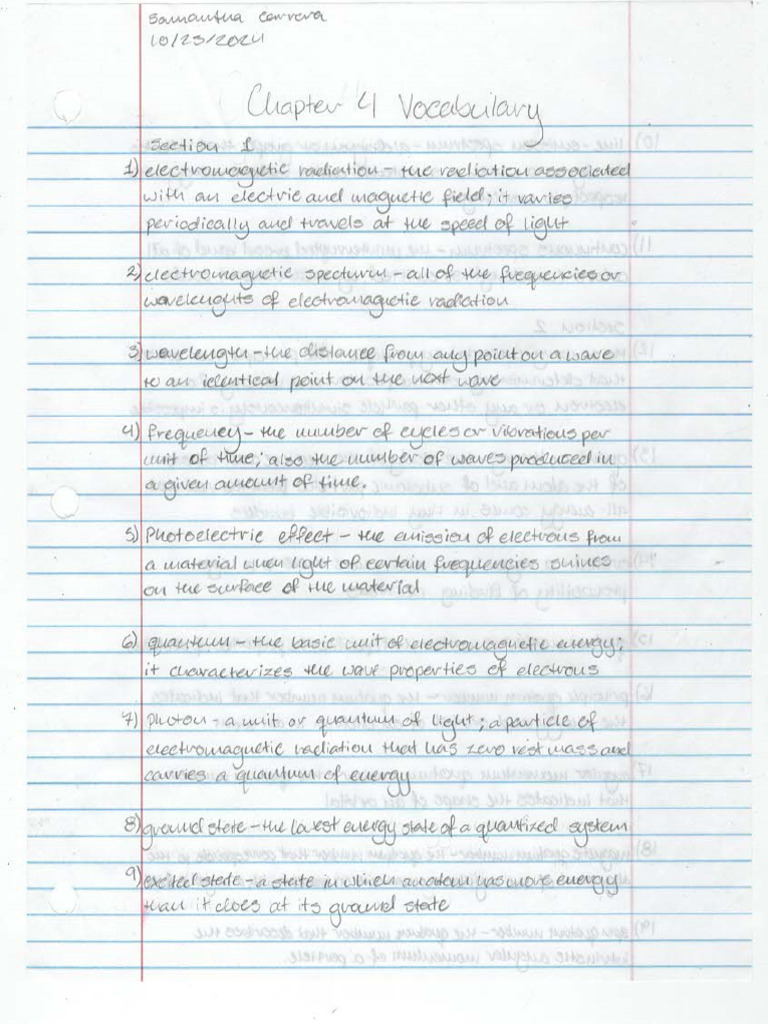 Samantha Correra
10/23/2024
Chapter 4 Vocabulary
Section 1
1) electromagnetic radiation - the radiation associated
with an electric and magnetic field; it varies
periodically and travels at the speed of light
2) electromagnetic specturm - all of the frequencies or
wavelenghts of electromagnetic radiation
3) wavelength - the distance from any point on a wave
to an identical point on the next wave
4) frequency - the number of cycles or vibrations per
unit of time; also the number of waves produced in
a given amount of time.
5) Photoelectric effect - the emission of electrons from
a material when light of certain frequencies shines
on the surface of the material
6) quantum - the basic unit of electromagnetic energy;
it characterizes the wave properties of electrons
7) Photon - a unit or quantum of light; a particle of
electromagnetic radiation that has zero rest mass and
carries a quantum of energy
8) ground state - the lowest energy state of a quantized system
9) excited state - a state in which an atom has more energy
than it does at its ground state